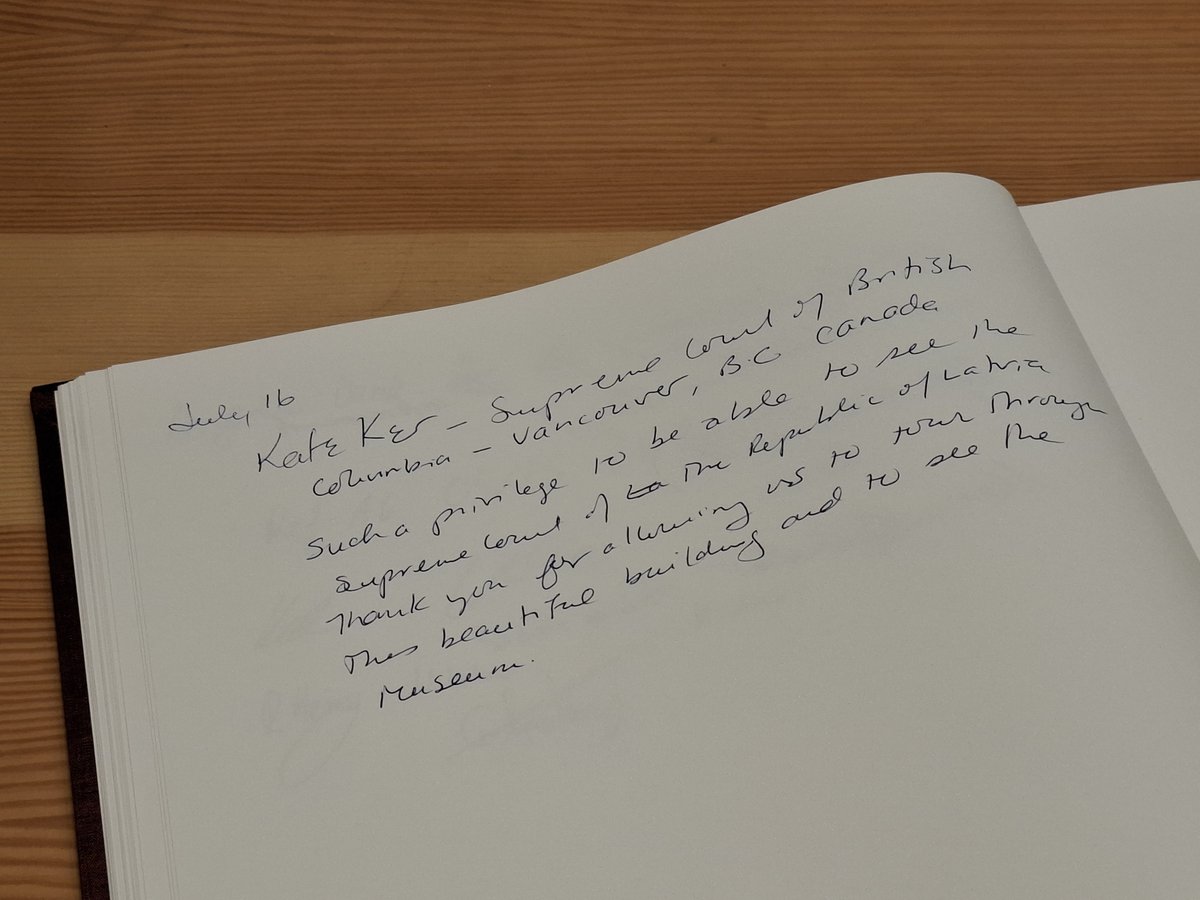 July 16
Kate Ker - Supreme Court of British
Columbia - Vancouver, B.C Canada
Such a privilege to be able to see the
Supreme Court of La The Republic of Latvia
Thank you for allowing us to tour through
This beautiful building and to see the
Museum.